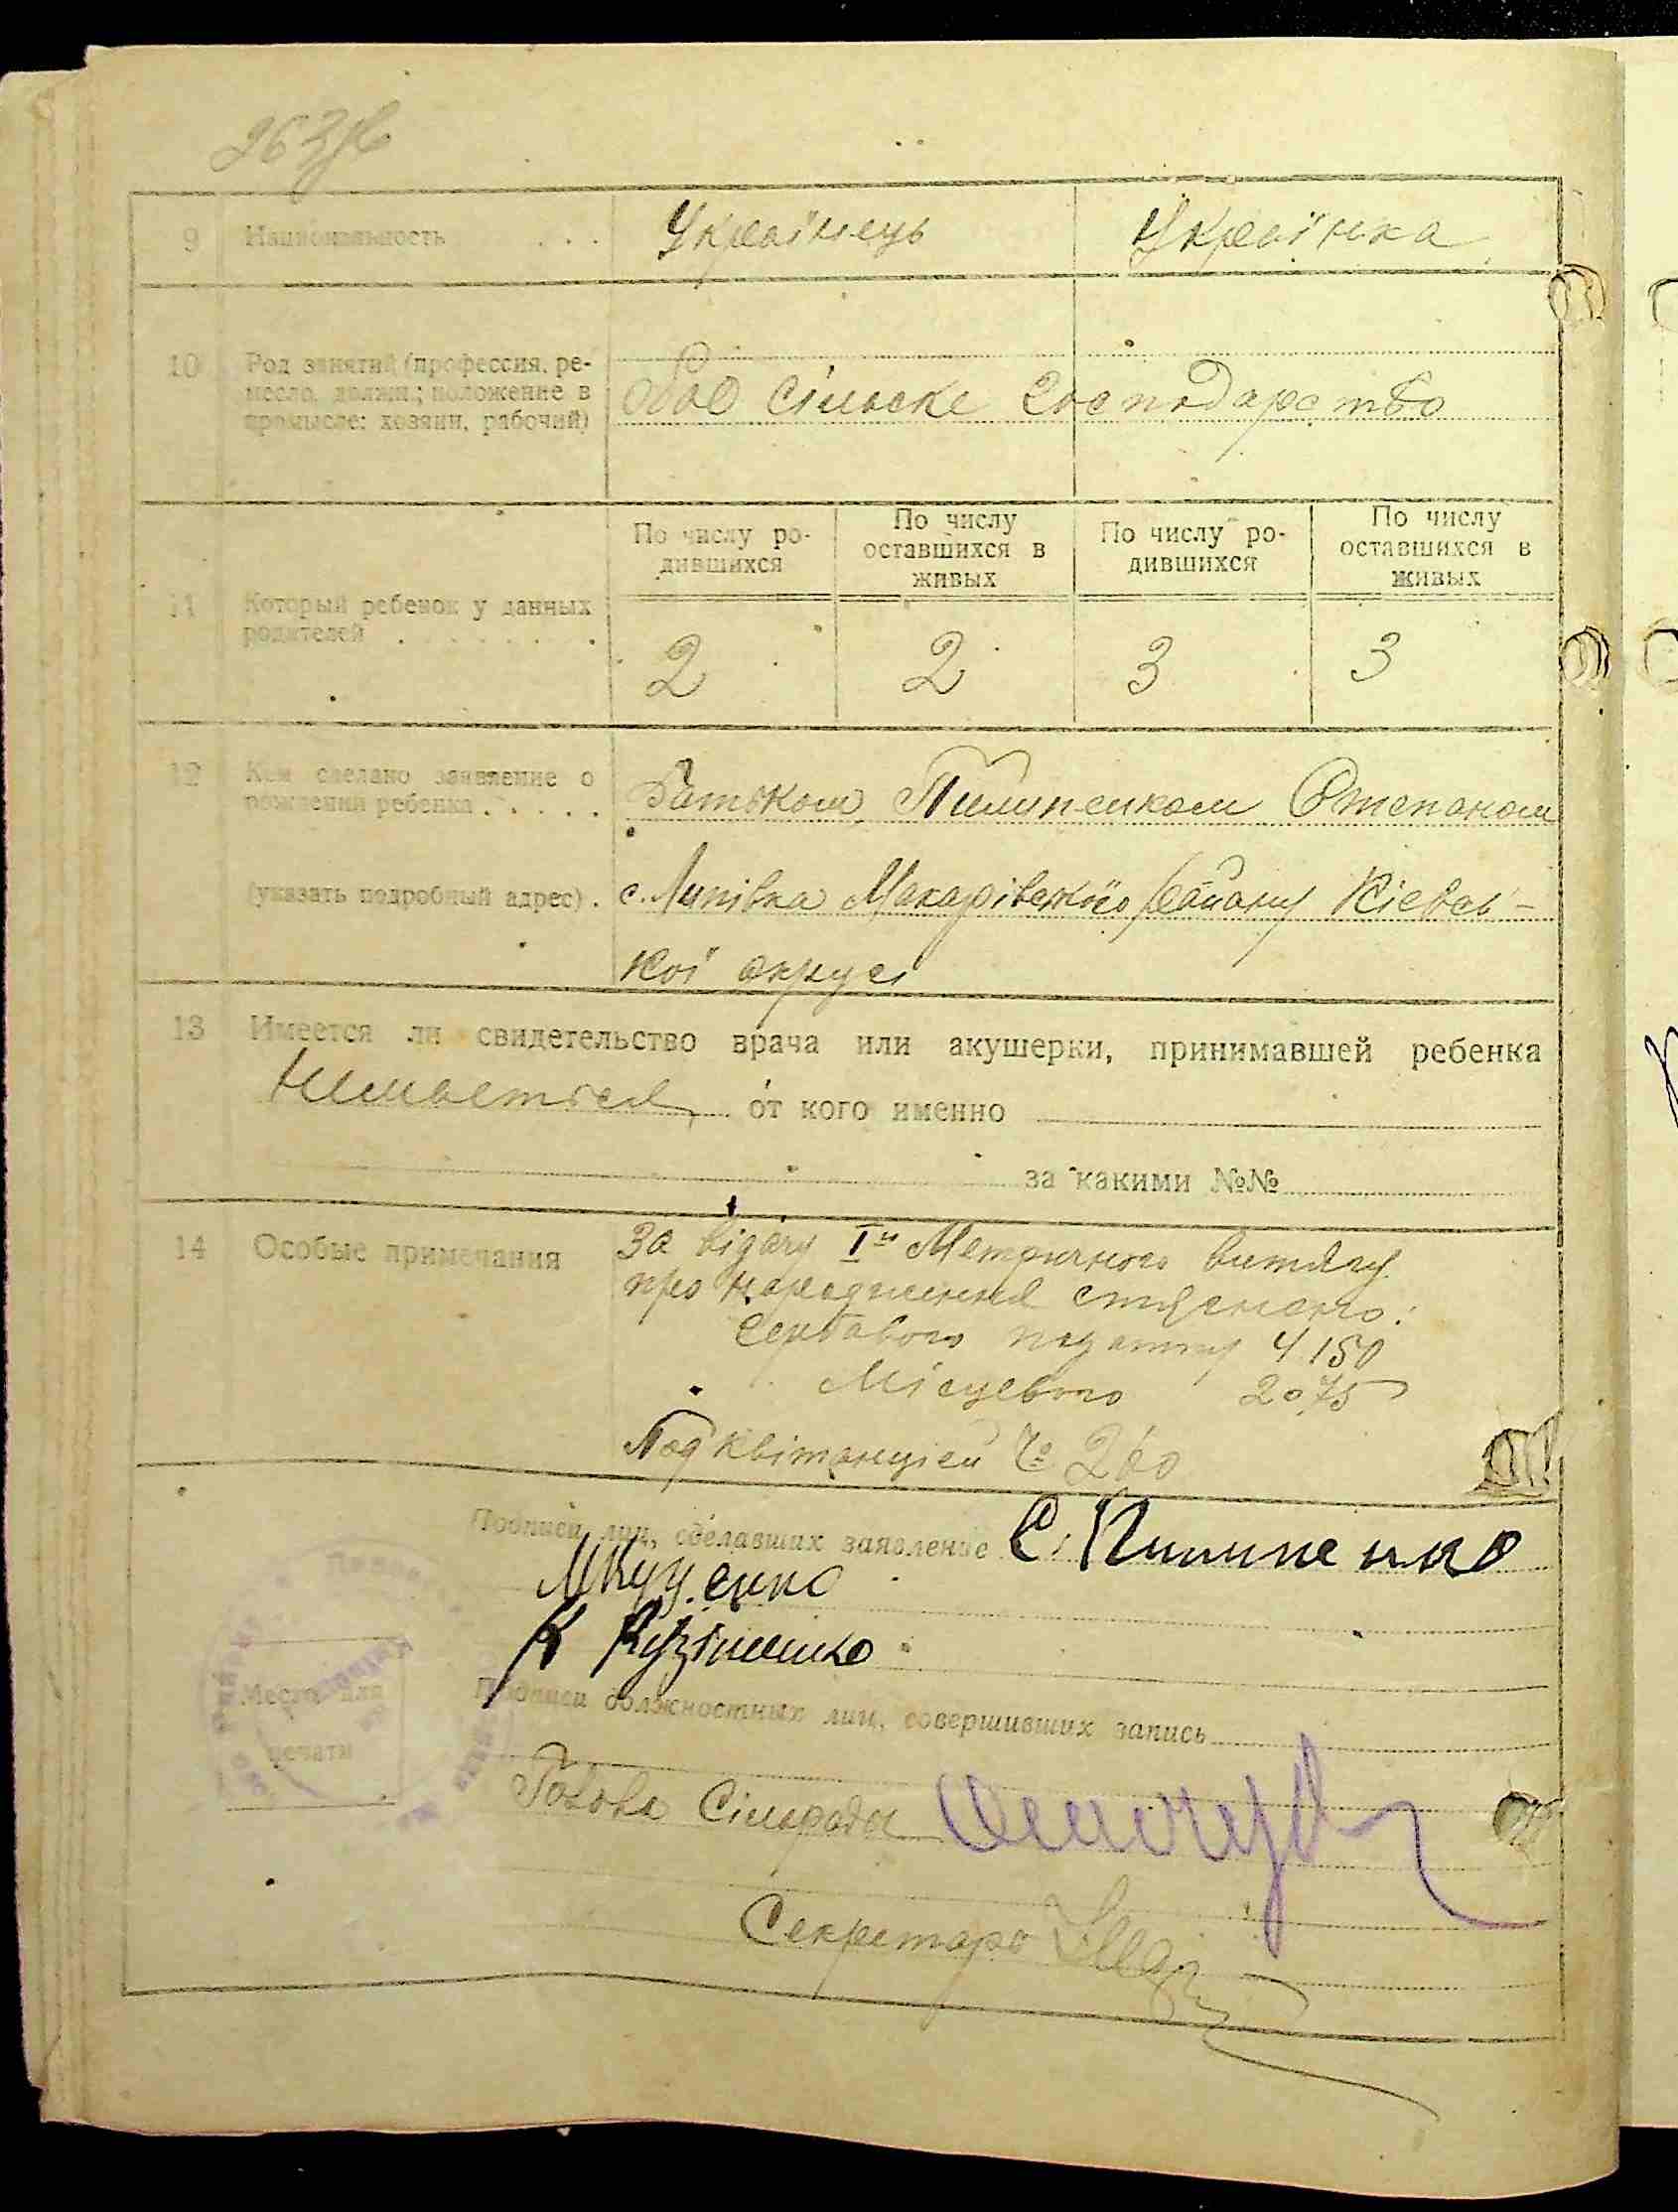 263
9 Национальность . . . Українець Українка
10 Род занятий (профессия, ре-
месло, должн.; положение в
промысле: хозяин, рабочий)
сільске господарство
По числу ро-
дившихся
По числу
оставшихся в
живых
По числу ро-
дившихся
По числу
оставшихся в
живых
11 Который ребенок у данных
родителей . . . . . . . .
2 2 3 3
12 Кем сделано заявление о
рождении ребенка . . . . .
Батьком Пилипенком Степаном
(указать подробный адрес) . с. Липівка Макарівського району Кіевсь-
кої округи
13 Имеется ли свидетельство врача или акушерки, принимавшей ребенка
Немаеться от кого именно
за какими №№
14 Особые примечания
За відачу Iго Метричного витягу
про народження стягнено:
податку 4 150
Місцевого 2075
Под квітанціей № 260
Подписи лиц, сделавших заявление С. Пилипенко
К Кузьменко
Место для
печати
Подписи должностных лиц, совершивших запись
Голова Сільради
Секретарь